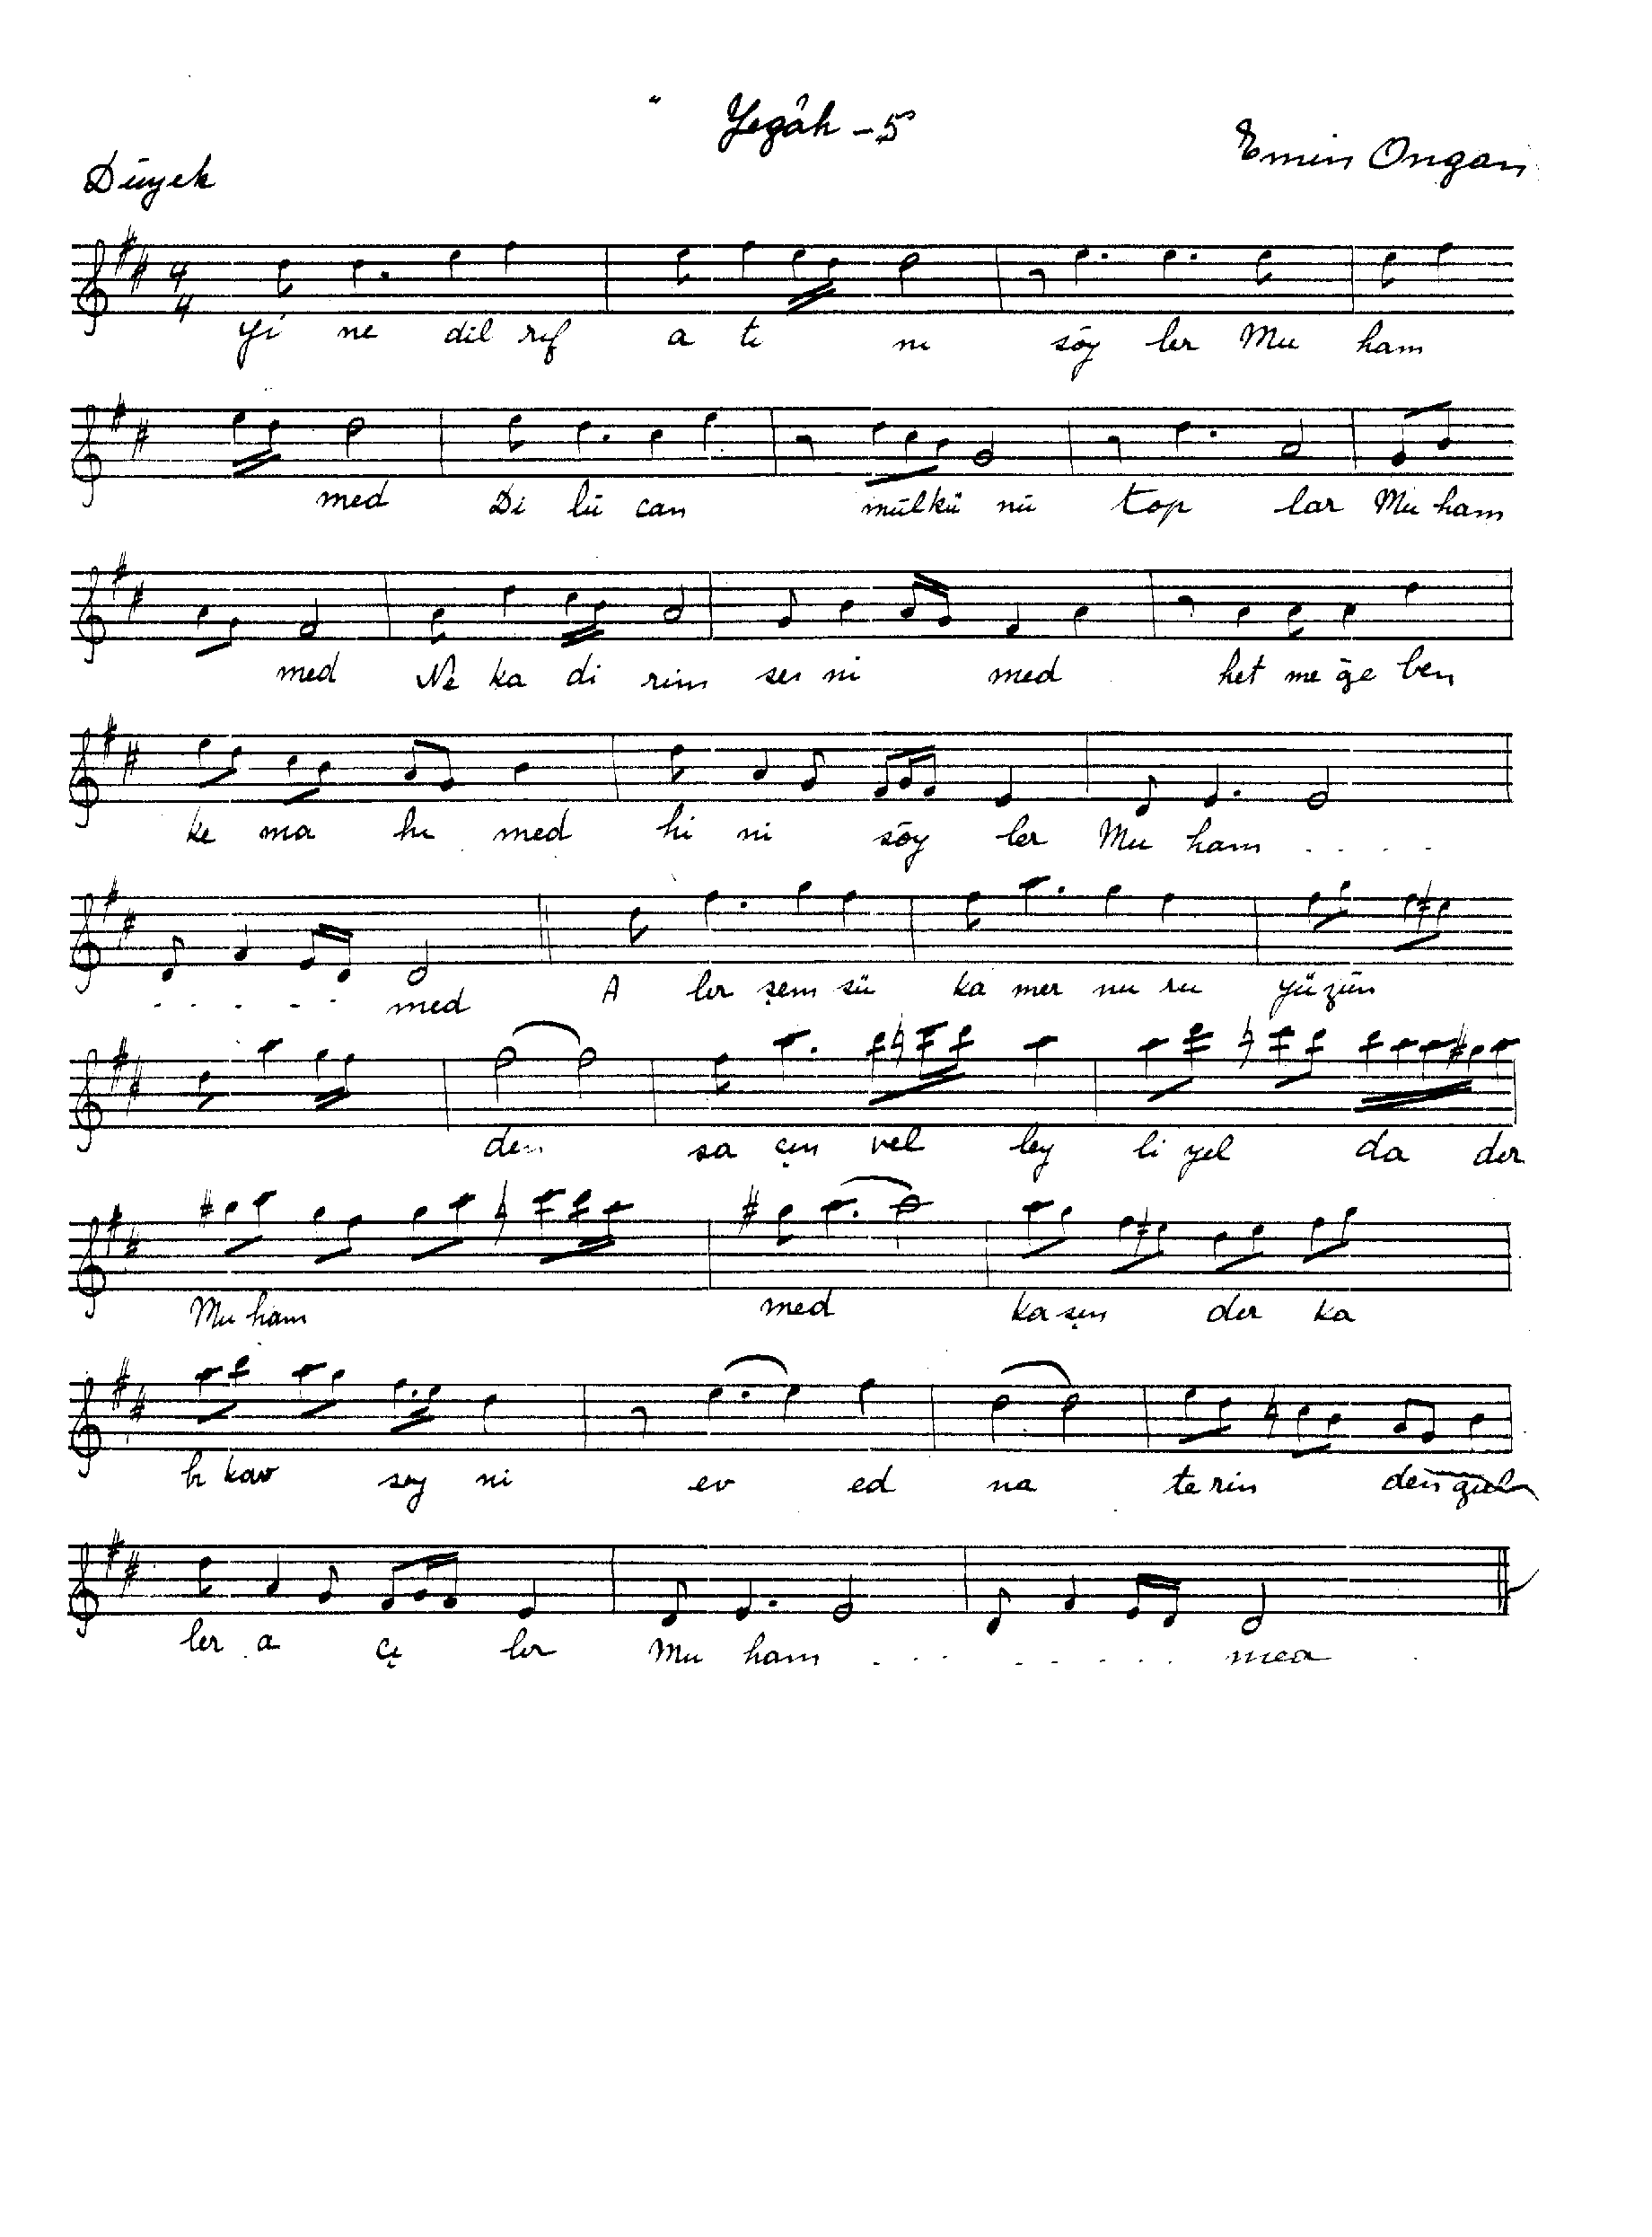 Yegâh - 5
Emin Ongan
Düyek
4 4
Yi ne dil rıf a tı nı söy ler Mu ham
med Di lü can mülkü nü top lar Mu ham
med Ne ka di rim se ni med het me ğe ben
ke ma hı med hi ni söy ler Mu ham . . . .
. . . . . med A lır şem sü ka mer nu ru yü zün
den sa çın vel ley li yel da dır
Mu ham med ka şın dır ka
b kav sey ni ev ed na te rin den
ler a çı lır Mu ham . . . . . . . . med